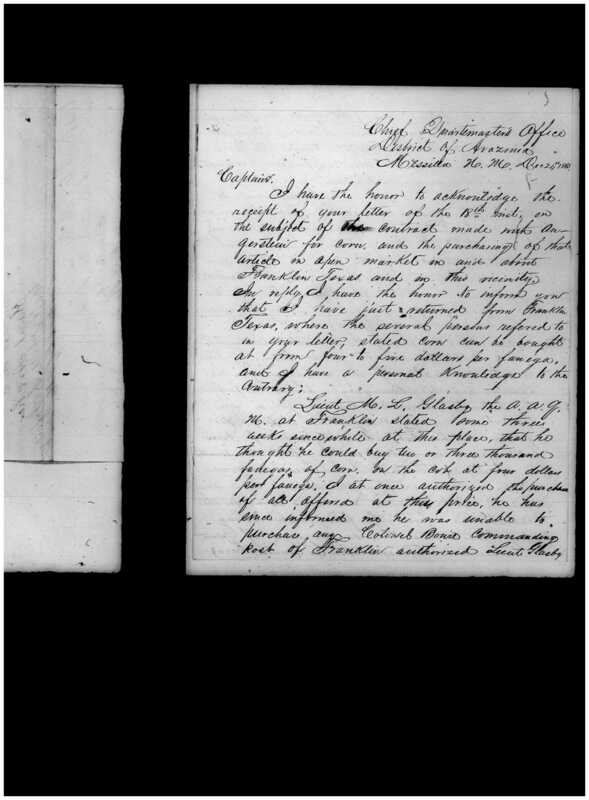 Chief Quartermasters Office
District of Arazonia
Messilla N. M. Dec 25th
Captain.
I have the honor to acknowledge the
receipt of your letter of the 18th inst, on
the subject of the contract made with An-
gerstein for corn, and the purchasing of that
article in open market in and about
Franklin Texas and in this vicinity
In reply I have the honor to inform you
that I have just returned from Franklin
Texas, where the several persons refered to
in your letter, stated corn can be bought
at from four to five dollars per fanega,
and I have a personal knowledge to the
Contrary;
Lieut M. L. Glasby the A. A. Q.
M. at Franklin stated some three
weeks since while at this place, that he
thought he could buy two or three thousand
fanegas of corn. on the cob at four dollars
per fanega. I at once authorized the purchase
of all offered at this price, he has
since informed me he was unable to
purchase any Colonel Bowie Commanding
Post of Franklin authorized Lieut Glasby